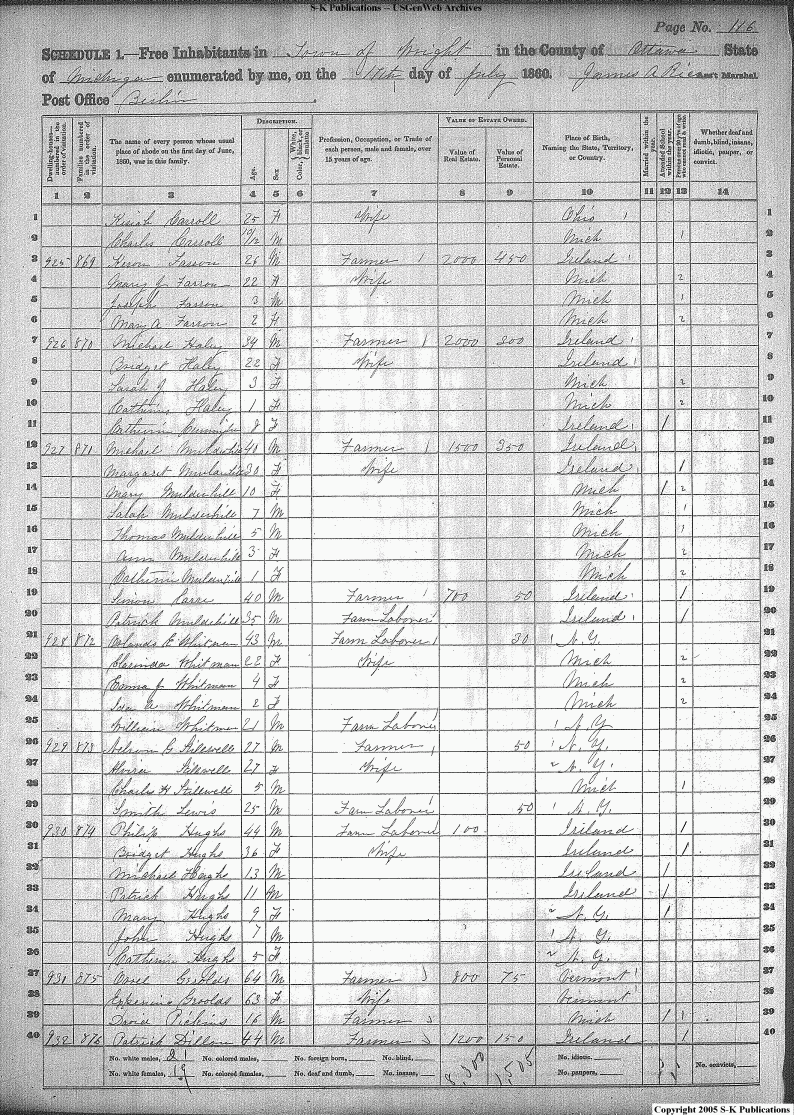 S-K Publications -- USGenWeb Archives
Page No. 116
SCHEDULE 1.—Free Inhabitants in Town of Wright in the County of Ottawa State
of Michigan enumerated by me, on the 17th day of July 1860. James A Rice Ass't Marshal
Post Office Berlin
Dwelling-houses— numbered in the order of visitation.
Families numbered in the order of visitation.
The name of every person whose usual place of abode on the first day of June, 1860, was in this family.
DESCRIPTION.
Age.
Sex
Color, White, black, or mulatto
Profession, Occupation, or Trade of each person, male and female, over 15 years of age.
VALUE OF ESTATE OWNED.
Value of Real Estate.
Value of Personal Estate.
Place of Birth, Naming the State, Territory, or Country.
Married within the year.
Attended School within the year.
Whether deaf and dumb, blind, insane, idiotic, pauper, or convict.
1 2 3 4 5 6 7 8 9 10 11 12 13 14
1 Carroll 25 F Wife Ohio 1
2 Charles Carroll 10/12 M Mich 2
3 925 869 Farron 26 M Farmer 2000 450 Ireland 3
4 Mary J Farron 22 F Wife Mich 4
5 Joseph Farron 3 M Mich 5
6 Mary A Farron 2 F Mich 6
7 926 870 Michael Haley 34 M Farmer 2000 200 Ireland 7
8 Bridget Haley 22 F Wife Ireland 8
9 Sarah J Haley 3 F Mich 9
10 Catherine Haley 1 F Mich 10
11 Catherin 8 F Ireland 1 11
12 927 871 Michael Mulderhill 40 M Farmer 1500 350 Ireland 12
13 Margaret Mulderhill 30 F Wife Ireland 1 13
14 Mary Mulderhill 10 F Mich 1 14
15 Mulderhill 7 M Mich 15
16 Thomas Mulderhill 5 M Mich 16
17 Ann Mulderhill 3 F Mich 17
18 Catherin Mulderhill 1 F Mich 18
19 Simon 40 M Farmer 700 50 Ireland 1 19
20 Patrick Mulderhill 35 M Farm Laborer Ireland 1 20
21 928 872 Orlando E Whitman M Farm Laborer 30 N.Y. 21
22 Clarinda Whitman 22 F Wife Mich 22
23 Emma J Whitman 4 F Mich 23
24 Whitman 2 F Mich 24
25 William Whitman 21 M Farm Laborer N.Y. 25
26 929 873 Nelson G Stillwell 27 M Farmer 50 N.Y. 26
27 Stillwell 27 F Wife N.Y. 27
28 Charles H Stillwell 5 M Mich 28
29 Smith Lewis 25 M Farm Laborer 50 N.Y. 29
30 930 874 Philip Hughs 44 M Farm Laborer 100 Ireland 1 30
31 Bridget Hughs 36 F Wife Ireland 1 31
32 Michael Hughs 13 M Ireland 1 32
33 Patrick Hughs 11 M Ireland 1 33
34 Mary Hughs 9 F N.Y. 1 34
35 John Hughs 7 M N.Y. 35
36 Catherin Hughs 5 F N.Y. 36
37 931 875 64 M Farmer 800 75 Vermont 37
38 63 F Wife Vermont 38
39 David 16 M Farmer Mich 1 1 39
40 932 876 Patrick Dillon 44 M Farmer 1200 150 Ireland 1 40
No. white males, 21 No. colored males, No. foreign born, No. blind, 8,300 1,505 No. idiotic, No. convicts,
No. white females, 19 No. colored females, No. deaf and dumb, No. insane, No. paupers,
Copyright 2005 S-K Publications